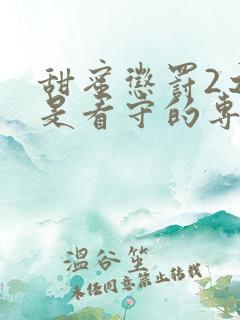 甜蜜惩罚2
是看守的专
温谷笙
未经同意禁止转载